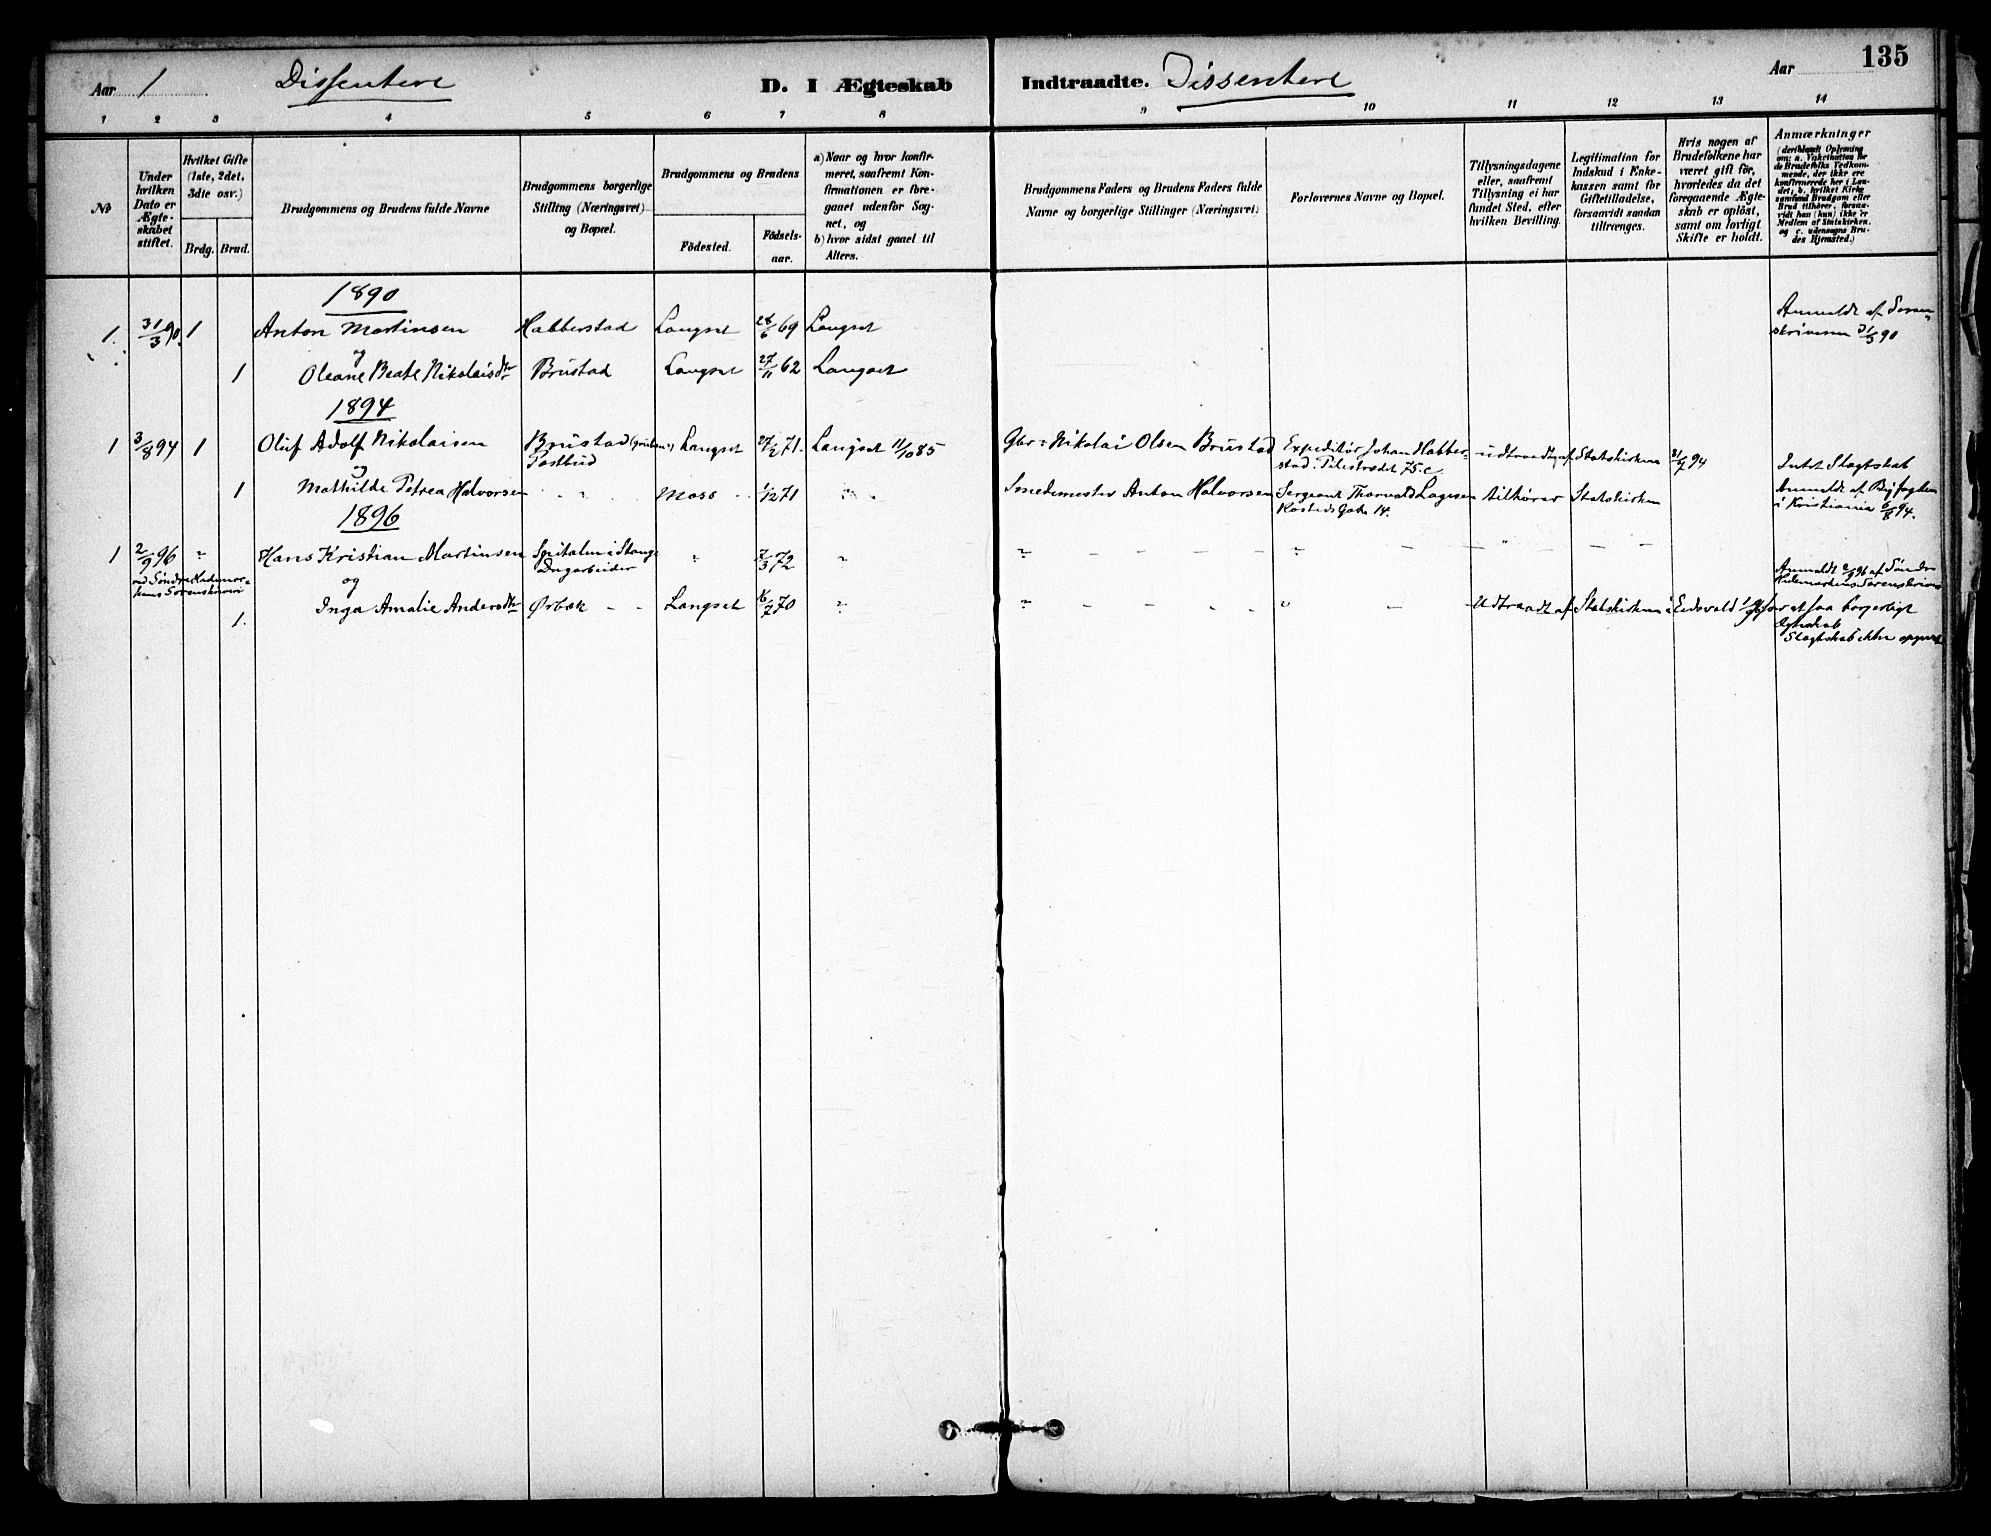 135
Aar 1 Dissentere D. I Ægteskab Indtraadte. Dissentere Aar
1 2 3 4 5 6 7 8 9 10 11 12 13 14
No
Under hvilken Dato er Ægteskabet stiftet.
Hvilket Gifte (1ste, 2det, 3die osv.)
Brdg. Brud.
Brudgommens og Brudens fulde Navne
Brudgommens borgerlige Stilling (Næringsvei) og Bopæl.
Brudgommens og Brudens
Födested.
Födselsaar.
a) Naar og hvor konfirmeret, saafremt Konfirmationen er foregaaet udenfor Sognet, og
b) hvor sidst gaaet til Alters.
Brudgommens Faders og Brudens Faders fulde Navne og borgerlige Stillinger (Næringsvei)
Forlovernes Navne og Bopæl.
Tillysningsdagene eller, saafremt Tillysning ei har fundet Sted, efter hvilken Bevilling.
Legitimation for Indskud i Enkekassen samt for Giftetilladelse, forsaavidt saadan tiltrænges.
Hvis nogen af Brudefolkene har været gift för, hvorledes da det foregaaende Ægteskab er oplöst, samt om lovligt Skifte er holdt.
Anmærkninger (deriblandt Oplysning om: a. Vaksination for de Brudefolks Vedkommende, der ikke ere konfirmerede her i Landet; b. hvilket Kirkesamfund Brudgom eller Brud tilhörer, forsaavidt han (hun) ikke er Medlem af Statskirken, og c. udensogns Brudes Hjemsted.)
1890
1. 31/3 90. 1 Anton Martinsen Habberstad Langset 28/6 69 Langset Anmeldt af Soren-
skriveren 31/3 90
og
1 Oleane Beate Nikolaisdtr Brustad Langset 27/11 62 Langset
1894
1 3/8 94 1 Oluf Adolf Nikolaisen Brustad Langset 71. Langset 11/10 85 Gbr. Nikolai Olsen Brustad Expeditör Johan Habber-
stad. Pilestrædet 75 c. udtraadt af Statskirken 31/7 94 Intet Slagtskab
Postbud
og
1 Mathilde Petrea Halvorsen " Moss 1/12 71 " Smedemester Anton Halvorsen Sergeant Thorvald tilhörer Statskirken Anmeldt af Byfogden
i Kristiania 6/8 94.
14.
1896
1 2/9 96 " Hans Kristian Martinsen i Stange " 7/3 72 "
ved Söndre Hedemar-
kens Sorenskriveri
Dagarbeider
og
Anmeldt 2/9 96 af Söndre
Hedemarkens Sorenskriveri
1. Inga Amalie Andersdtr Ørbæk Langset 16/7 70 " Udtraadt af Statskirken i Eidsvold for at faa borgerligt
Ægteskab
Slagtskab ikke opgivet